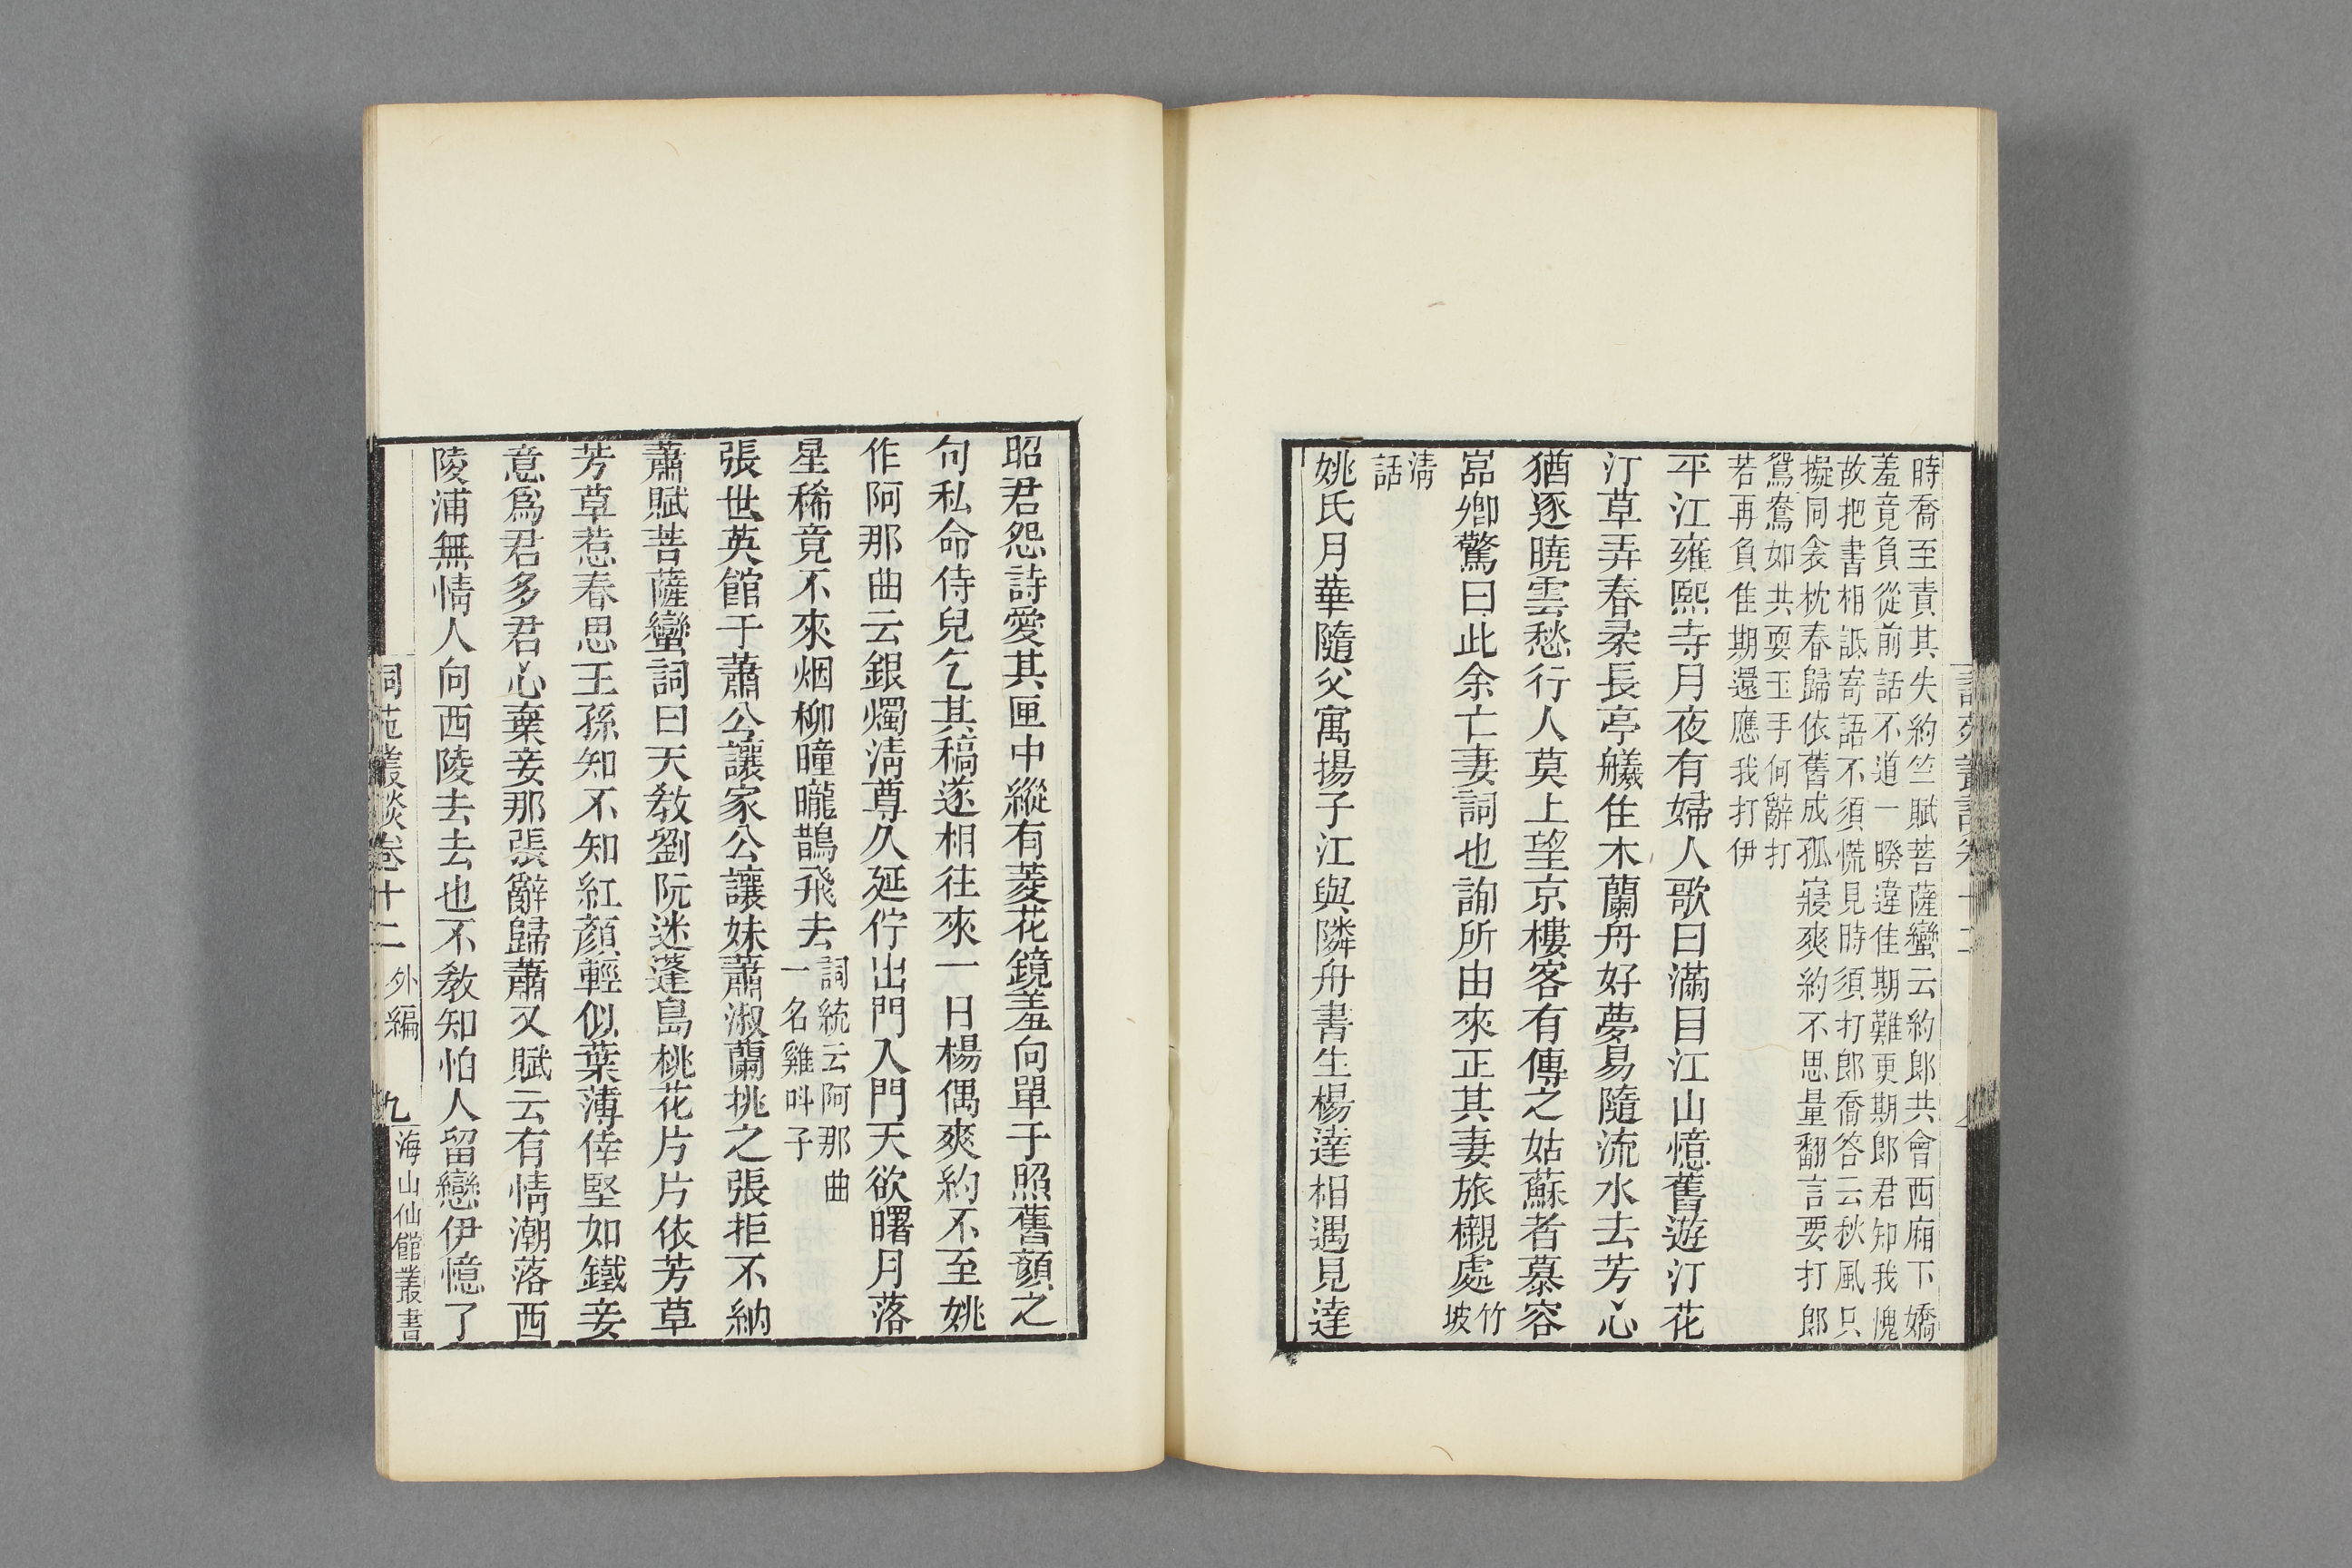 時喬至責其失約竺賦菩薩蠻云約郎共會西廂下嬌
羞竟負從前話不道一暌違佳期難更期郎君知我愧
故把書相詆寄語不須慌見時須打郎喬答云秋風只
擬同衾枕春歸依舊成孤寢爽約不思量翻言要打郎
鴛鴦如共耍玉手何辭打
若再負佳期還應我打伊
平江雍熙寺月夜有婦人歌曰滿目江山憶舊遊汀花
汀草弄春柔長亭艤住木蘭舟好夢易隨流水去芳心
猶逐曉雲愁行人莫上望京樓客有傳之姑蘇者慕容
嵓卿驚曰此余亡妻詞也詢所由來正其妻旅櫬處竹
坡
清
話
姚氏月華隨父寓揚子江與隣舟書生楊達相遇見達
昭君怨詩愛其匣中縱有菱花鏡羞向單于照舊顏之
句私命侍兒乞其稿遂相往來一日楊偶爽約不至姚
作阿那曲云銀燭清尊久延佇出門入門天欲曙月落
星稀竟不來烟柳曈曨鵲飛去詞統云阿那曲
一名雞呌子
張世英館于蕭公讓家公讓妹蕭淑蘭挑之張拒不納
蕭賦菩薩蠻詞曰天教劉阮迷蓬島桃花片片依芳草
芳草惹春思王孫知不知紅顏輕似葉薄倖堅如鐵妾
意爲君多君心棄妾那張辭歸蕭又賦云有情潮落西
陵浦無情人向西陵去去也不敎知怕人留戀伊憶了
詞苑叢談卷十二 外編 九 海山仙館叢書